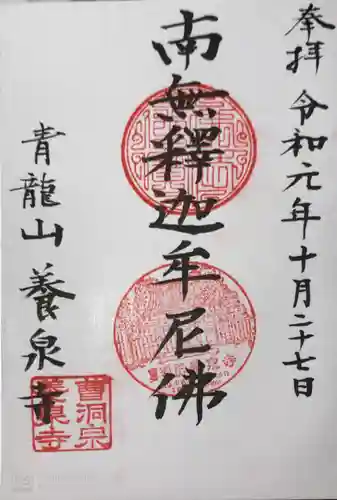 奉拝 令和元年十月二十七日
南無釋迦牟尼佛
青龍山 養泉寺
曹洞宗
養泉寺